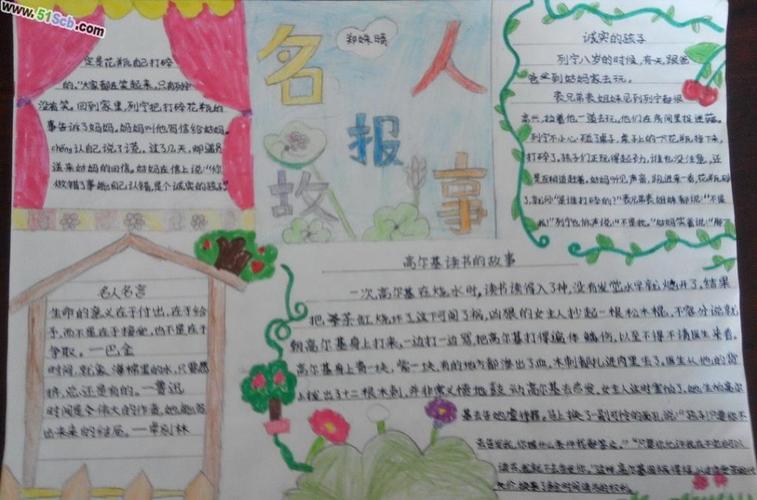 www.51Scb.com
名人故事报
诚实的孩子
列宁八岁的时候,有一天,跟爸
爸到姑妈家去玩。
表兄弟表姐妹见到列宁都很
高兴,拉着他一道去玩,他们在房间里捉迷藏。
列宁不小心碰了桌子,桌子上的一下花瓶掉下来,
打碎了。孩子们正玩得起劲,谁也没注意,还
是互相追赶着。姑妈听见声音,跑进来一看,花瓶碎
了,就问“是谁打碎的?”表兄弟表姐妹都说:“不是
我!”列宁也低声说:“不是我。”姑妈笑着说:“那
一定是花瓶自己打碎
的。”大家都在笑起来,只有列宁
没有笑。回到家里,列宁把打碎花瓶的
事告诉了妈妈,妈妈叫他写信给姑妈,
chéng认自己说了谎。过了几天,邮递员
送来姑妈的回信。姑妈在信上说:“你
做错了事能自己认错,是个诚实的孩子。”
名人名言
生命的意义在于付出,在于给
予,而不是在于接受,也不是在于
争取。—巴金
时间,就象海棉里的水,只要愿
挤,总还是有的。—鲁迅
时间是个伟大的作者,她能写
出未来的结局。—卓别林
高尔基读书的故事
一次,高尔基在烧水时,读书读得入了神,没有发觉水早就烧开了,结果
把茶缸烧坏了。这下可闯了祸,凶狠的女主人抄起一根松木棍,不容分说就
朝高尔基身上打来,一边打一边骂,把高尔基打得遍体鳞伤,以至不得不请医生来看。
高尔基身上青一块,紫一块,有的地方都渗出了血,木刺都扎进肉里去了,医生从他的背
上拔出了十二根木刺,并非常义愤地鼓动高尔基去告发。女主人这时害怕了,她生怕高尔
基去告她虐待罪,马上换了一副可怜的面孔,说:“孩子,只要你不
去告发我,你提什么条件我都答应。”“只要你允许我在干完活可以
读书,我就不去告你。”